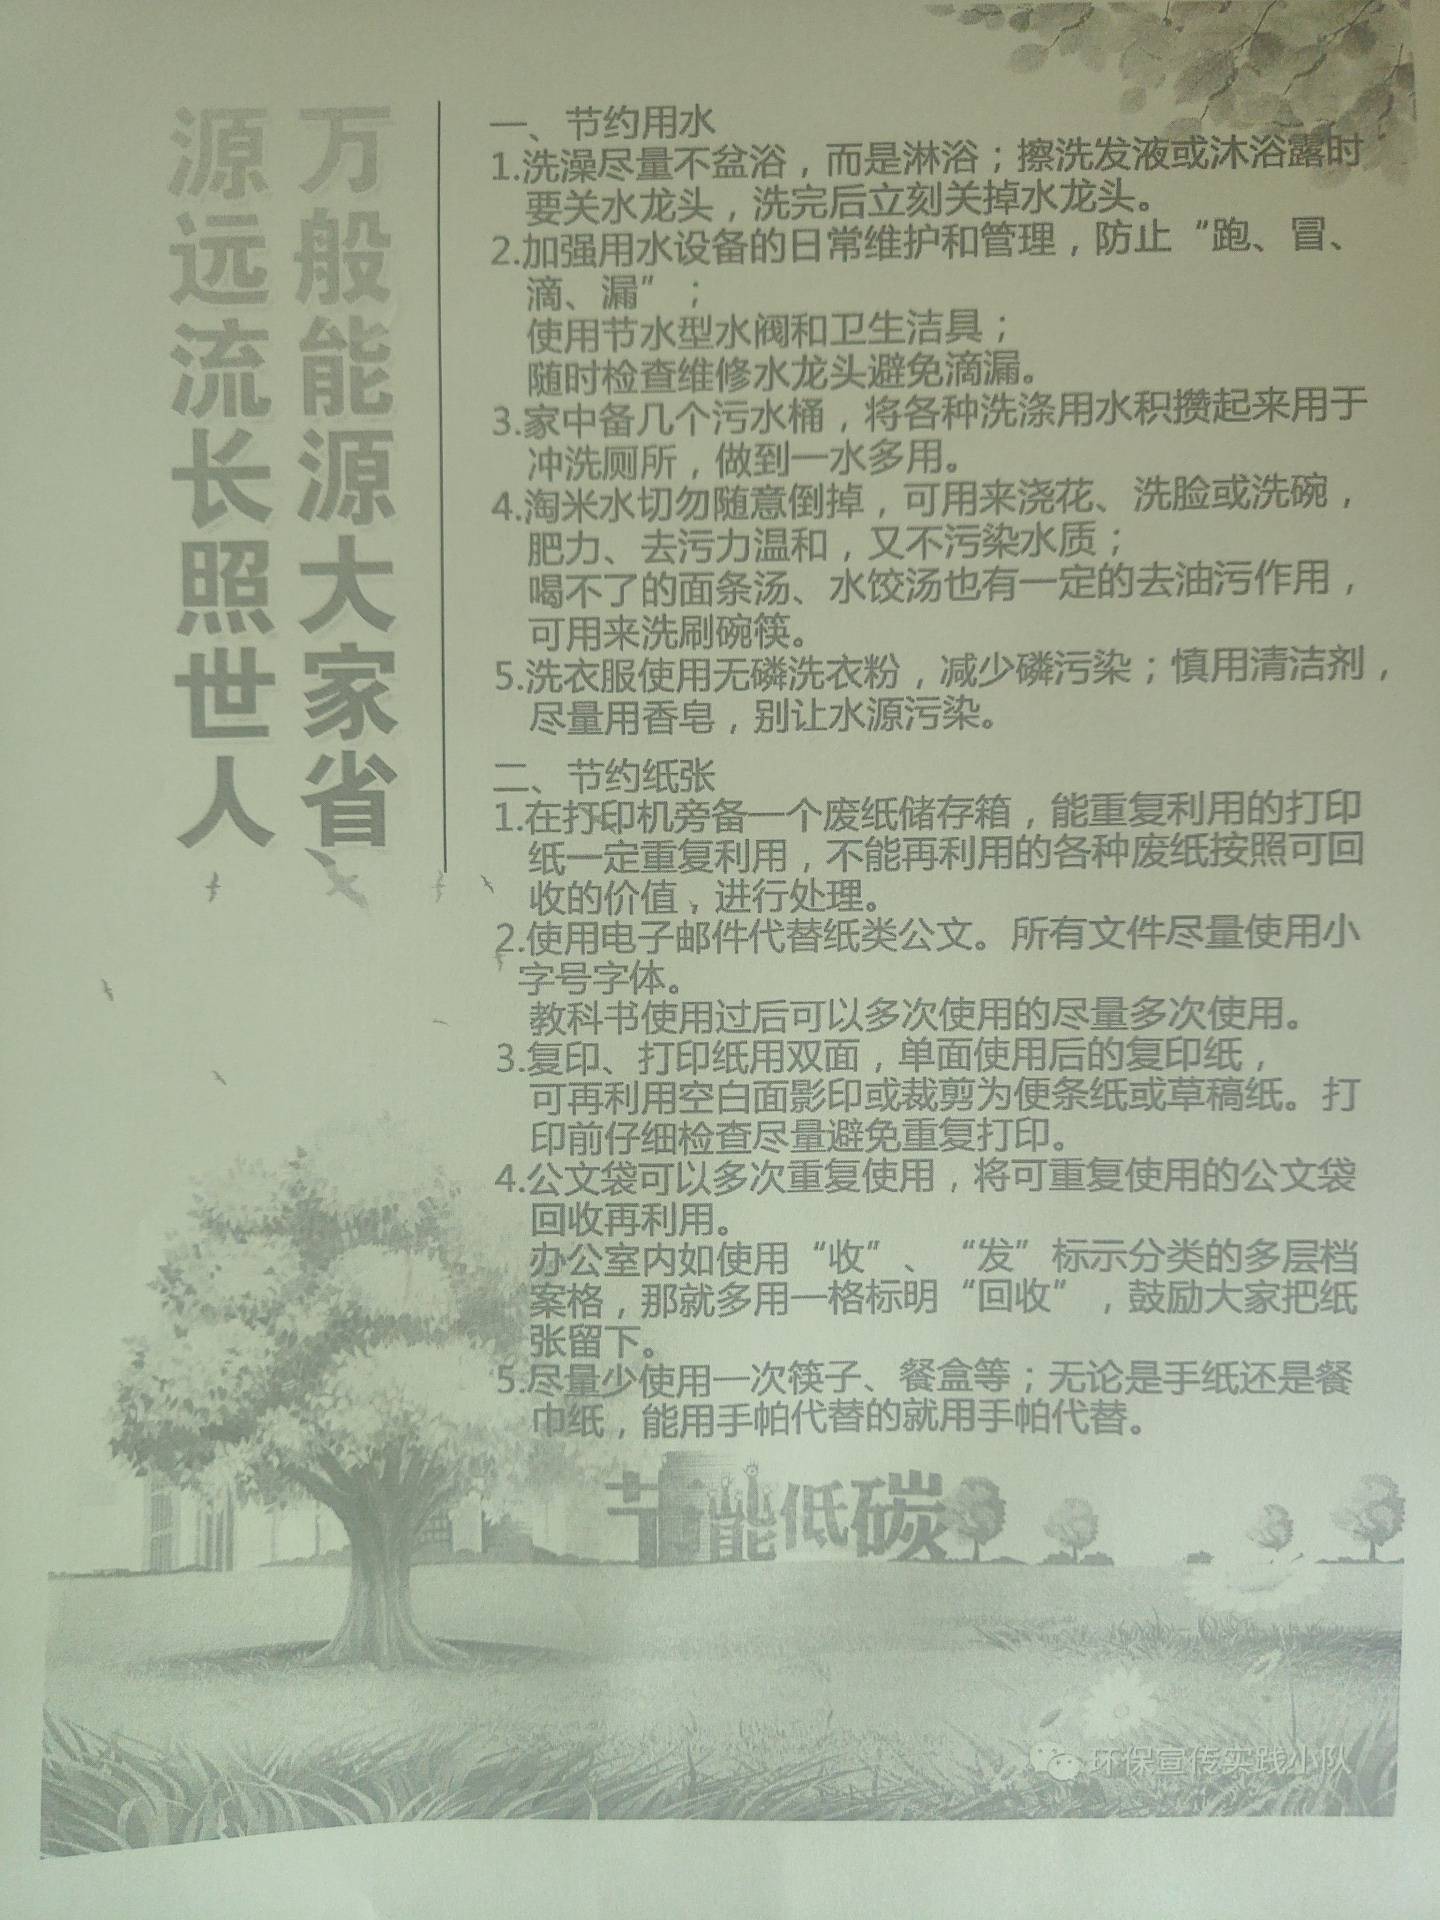 万般能源大家省
源远流长照世人
一、节约用水
1.洗澡尽量不盆浴，而是淋浴；擦洗发液或沐浴露时
要关水龙头，洗完后立刻关掉水龙头。
2.加强用水设备的日常维护和管理，防止“跑、冒、
滴、漏”；
使用节水型水阀和卫生洁具；
随时检查维修水龙头避免滴漏。
3.家中备几个污水桶，将各种洗涤用水积攒起来用于
冲洗厕所，做到一水多用。
4.淘米水切勿随意倒掉，可用来浇花、洗脸或洗碗，
肥力、去污力温和，又不污染水质；
喝不了的面条汤、水饺汤也有一定的去油污作用，
可用来洗刷碗筷。
5.洗衣服使用无磷洗衣粉，减少磷污染；慎用清洁剂，
尽量用香皂，别让水源污染。
二、节约纸张
1.在打印机旁备一个废纸储存箱，能重复利用的打印
纸一定重复利用，不能再利用的各种废纸按照可回
收的价值，进行处理。
2.使用电子邮件代替纸类公文。所有文件尽量使用小
字号字体。
教科书使用过后可以多次使用的尽量多次使用。
3.复印、打印纸用双面，单面使用后的复印纸，
可再利用空白面影印或裁剪为便条纸或草稿纸。打
印前仔细检查尽量避免重复打印。
4.公文袋可以多次重复使用，将可重复使用的公文袋
回收再利用。
办公室内如使用“收”、“发”标示分类的多层档
案格，那就多用一格标明“回收”，鼓励大家把纸
张留下。
5.尽量少使用一次筷子、餐盒等；无论是手纸还是餐
巾纸，能用手帕代替的就用手帕代替。
节能低碳
环保宣传实践小队